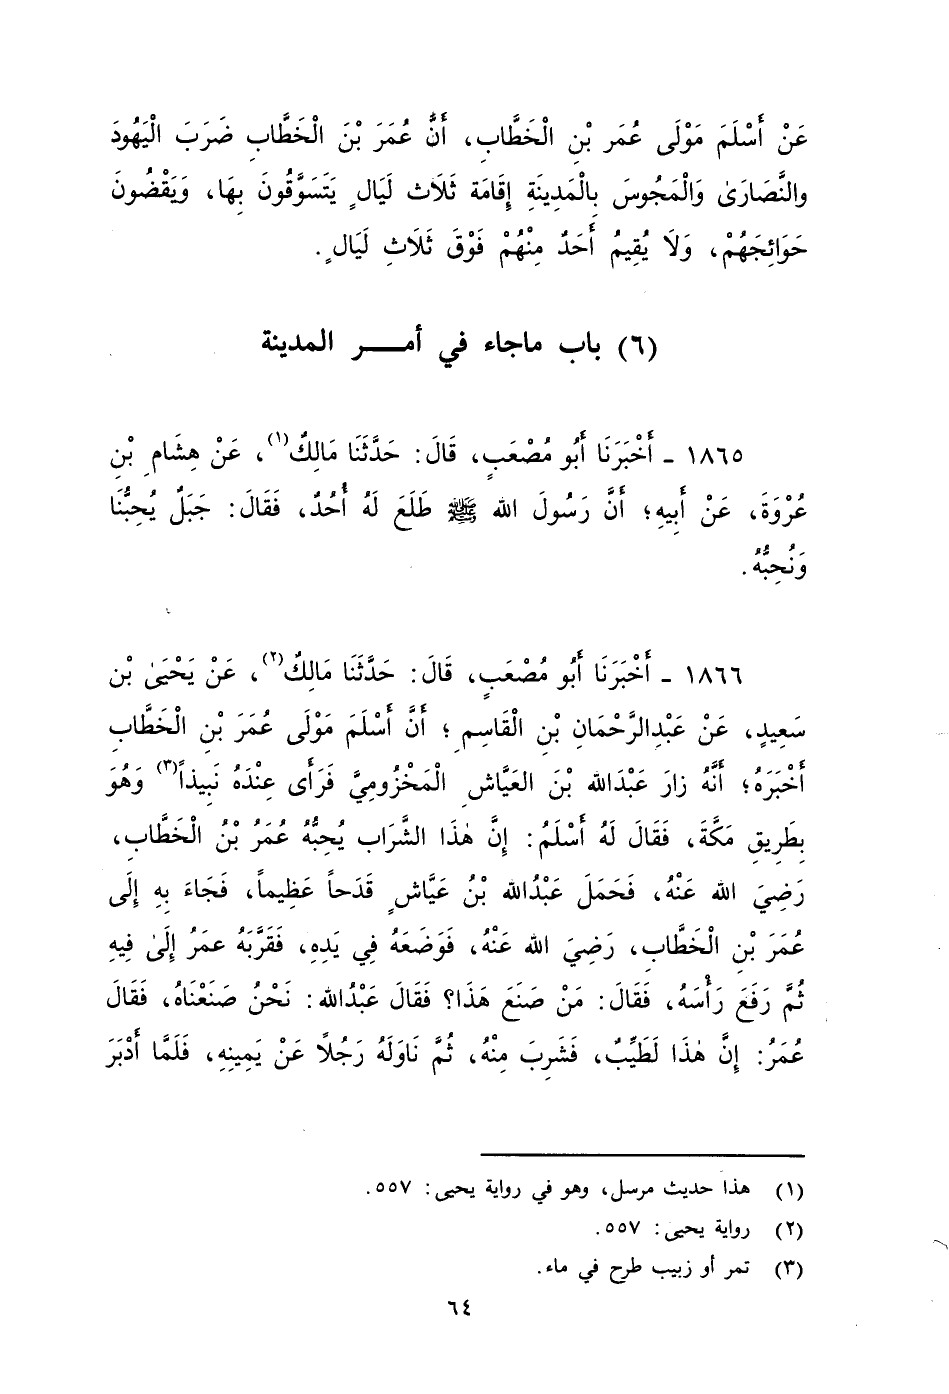 عَنْ أَسْلَمَ مَوْلَى عُمَر بْنِ الْخَطَّاب، أَنَّ عُمَرَ بْنَ الْخَطَّاب ضَرَبَ الْيَهُودَ
والنَّصَارَىٰ وَالْمَجُوسَ بِالْمَدِينَةِ إِقَامَة ثَلَاث لَيَالٍ يَتَسَوَّقُونَ بِهَا، وَيَقْضُونَ
حَوَائِجَهُمْ، وَلَا يُقِيمُ أَحَدٌ مِنْهُمْ فَوْقَ ثَلَاثِ لَيَالٍ.
(٦) باب ماجاء في أمــــر المدينة
١٨٦٥ ـ أَخْبَرَنَا أَبُو مُصْعَبٍ، قَالَ: حَدَّثَنَا مَالِكٌ(١)، عَنْ هِشَامِ بْنِ
عُرْوَةَ، عَنْ أَبِيهِ؛ أَنَّ رَسُولَ الله ﷺ طَلَعَ لَهُ أُحُدٌ، فَقَالَ: جَبَلٌ يُحِبُّنَا
وَنُحِبُّهُ.
١٨٦٦ ـ أَخْبَرَنَا أَبُو مُصْعَبٍ، قَالَ: حَدَّثَنَا مَالِكٌ(٢)، عَنْ يَحْيَىٰ بْن
سَعِيدٍ، عَنْ عَبْدِالرَّحْمَانِ بْنِ الْقَاسِمِ؛ أَنَّ أَسْلَمَ مَوْلَى عُمَرَ بْنِ الْخَطَّاب
أَخْبَرَهُ؛ أَنَّهُ زارَ عَبْدَالله بْنَ العَيَّاشِ الْمَخْزُومِيَّ فَرَأَى عِنْدَهُ نَبِيذاً(٣) وَهُوَ
بِطَرِيقِ مَكَّةَ، فَقَالَ لَهُ أَسْلَمُ: إِنَّ هٰذَا الشَّرَاب يُحِبُّهُ عُمَرُ بْنُ الْخَطَّابِ،
رَضِيَ الله عَنْهُ، فَحَمَلَ عَبْدُالله بْنُ عَيَّاشٍ قَدَحاً عَظِيماً، فَجَاءَ بِهِ إِلَى
عُمَرَ بْنِ الْخَطَّابِ، رَضِيَ الله عَنْهُ، فَوَضَعَهُ فِي يَدِهِ، فَقَرَّبَهُ عمَرُ إِلَىٰ فِيهِ
ثُمَّ رَفَعَ رَأْسَهُ، فَقَالَ: مَنْ صَنَعَ هَذَا؟ فَقَالَ عَبْدُالله: نَحْنُ صَنَعْنَاهُ، فَقَالَ
عُمَرُ: إِنَّ هٰذَا لَطَيِّبٌ، فَشَرِبَ مِنْهُ، ثُمَّ نَاوَلَهُ رَجُلاً عَنْ يَمِينِهِ، فَلَمَّا أَدْبَرَ
(١) هذا حديث مرسل، وهو في رواية يحيى: ٥٥٧.
(٢) رواية يحيى: ٥٥٧.
(٣) تمر أو زبيب طرح في ماء.
٦٤